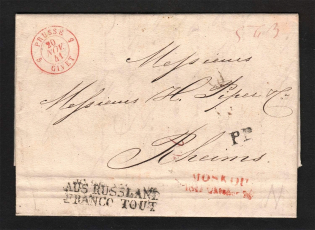 PRUSSE
20
NOV.
41
GIVET
Messieurs
Messieurs H. Piper & Co
Rheims
PP
AUS RUSSLAND
FRANCO TOUT
MOSKOU